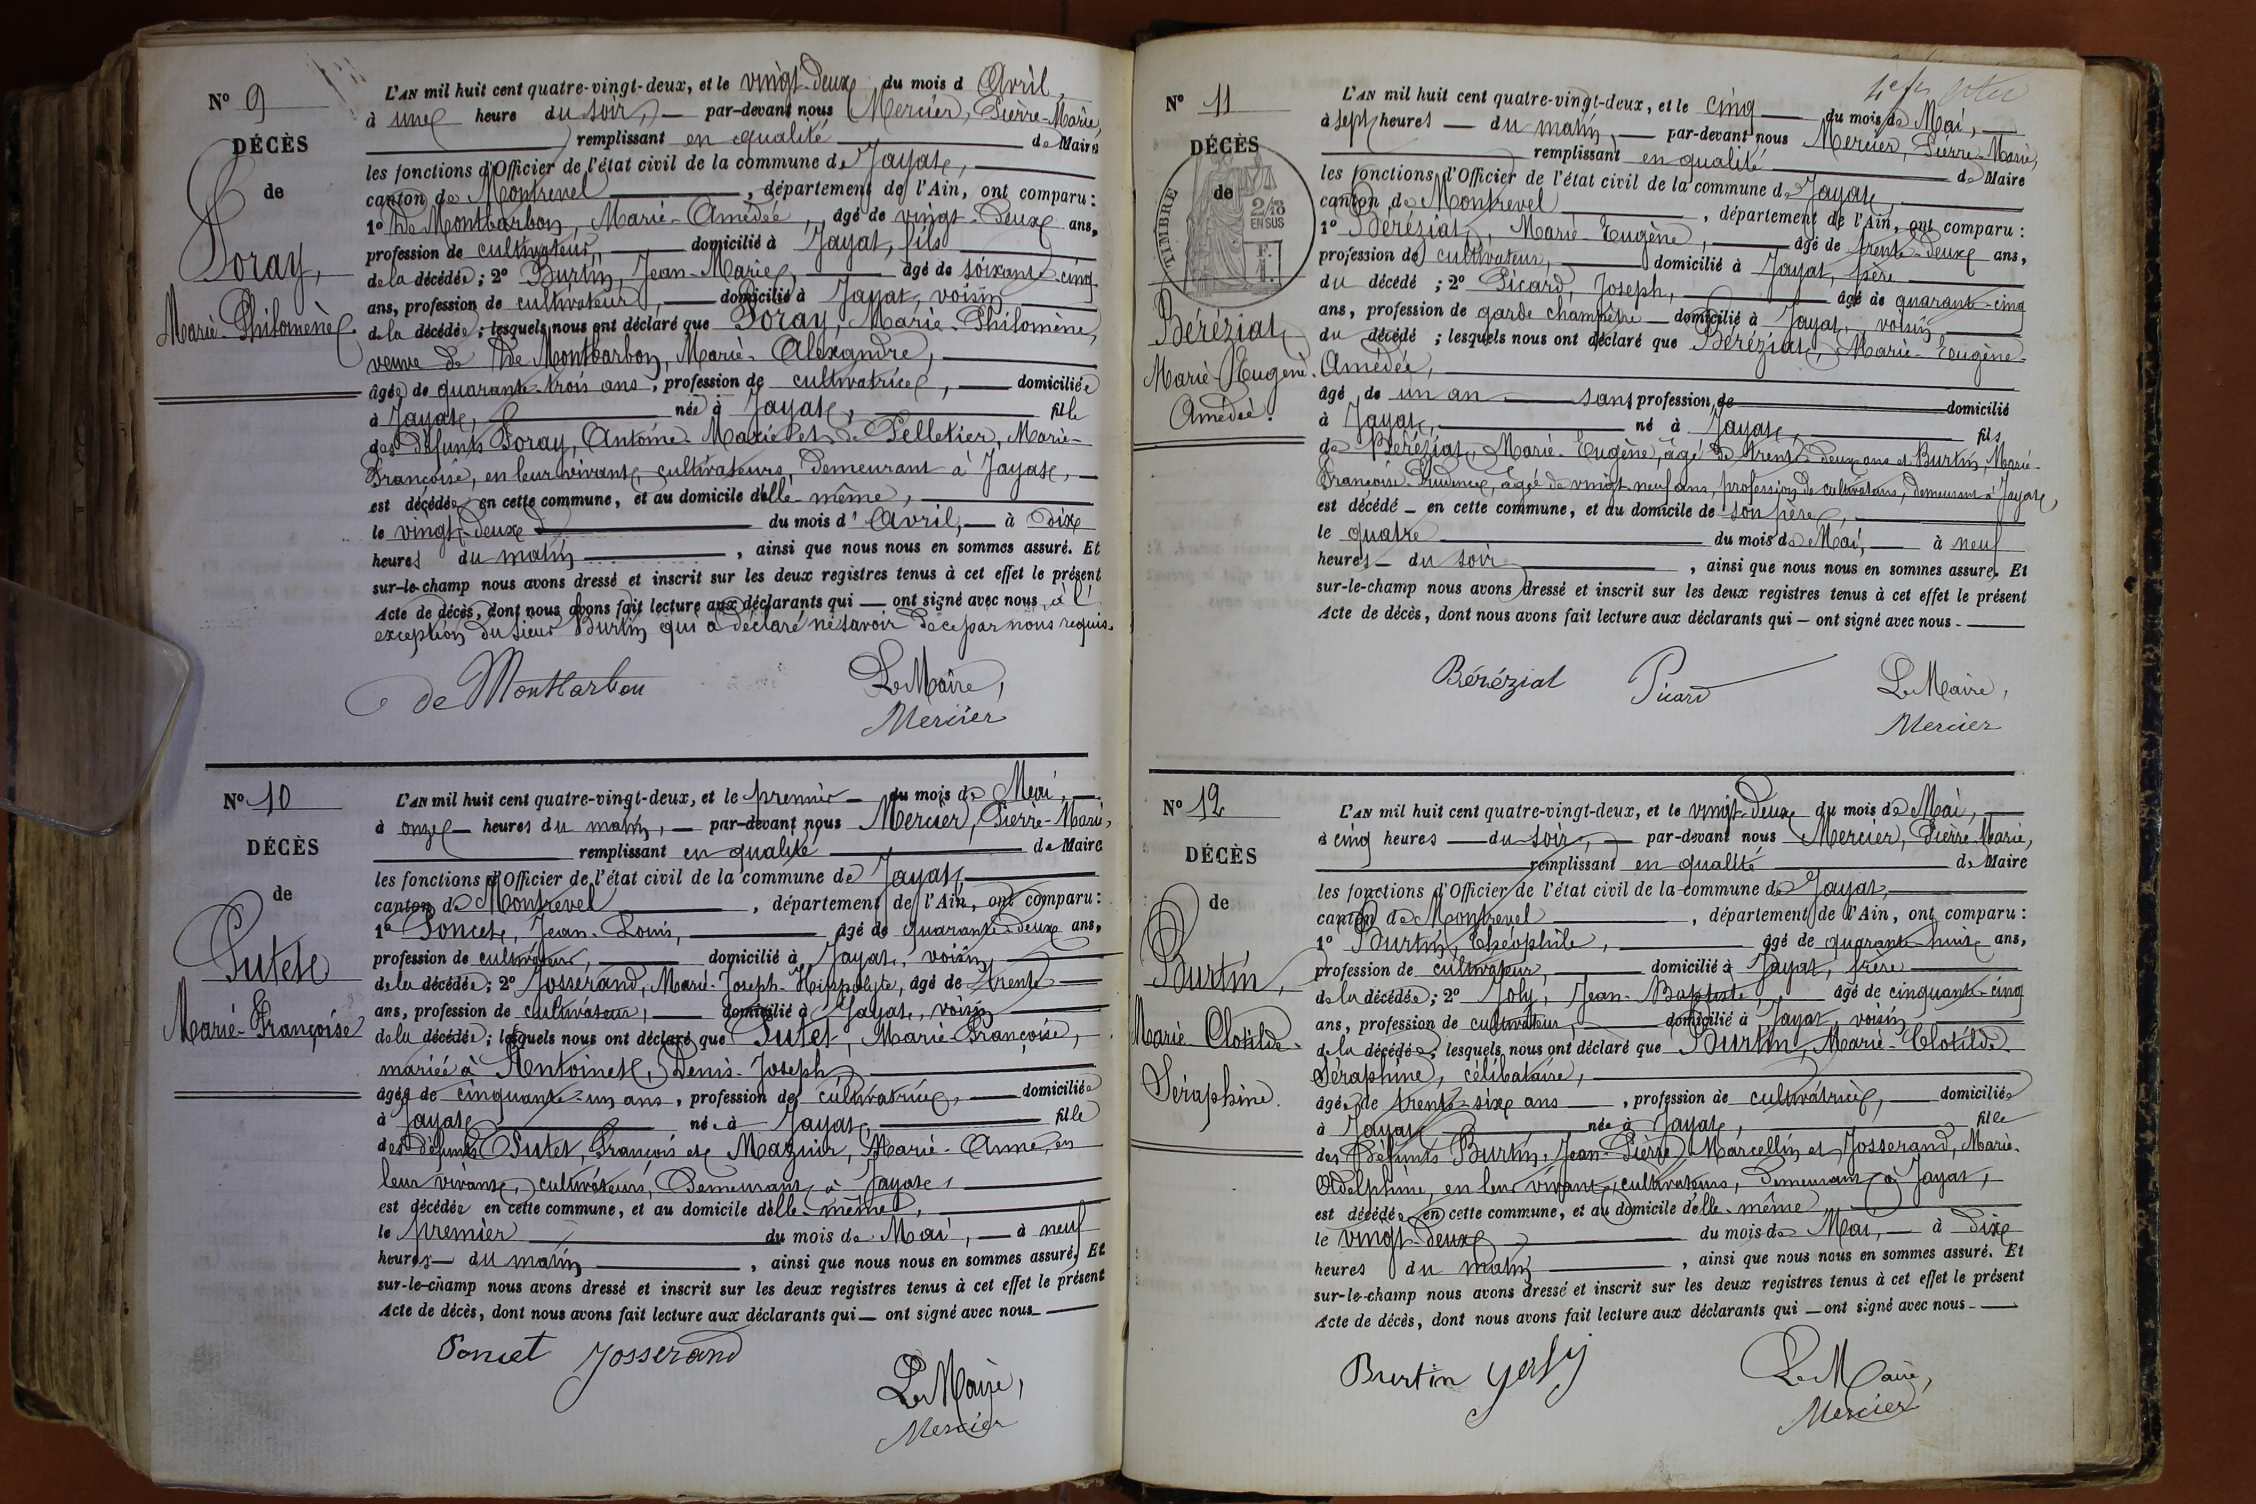 N° 9
DÉCÈS
de
Poray,
Marie-Philomène
L'AN mil huit cent quatre-vingt-deux, et le vingt-deux du mois d Avril,
à une heure du soir, — par-devant nous Mercier, Pierre-Marie,
remplissant en qualité de Maire
les fonctions d'Officier de l'état civil de la commune de Jayat,
canton de Montrevel, département de l'Ain, ont comparu :
1° de Montbarbon, Marie-Amédée, âgé de vingt-deux ans,
profession de cultivateur, domicilié à Jayat, fils
de la décédée ; 2° Burtin, Jean-Marie, âgé de soixante-cinq
ans, profession de cultivateur, domicilié à Jayat, voisin
de la décédée ; lesquels nous ont déclaré que Poray, Marie-Philomène,
veuve de de Montbarbon, Marie-Alexandre,
âgée de quarante-trois ans, profession de cultivatrice, domiciliée
à Jayat, née à Jayat, fille
des défunts Poray, Antoine-Marie et de Pelletier, Marie-
Françoise, en leur vivant, cultivateurs, demeurant à Jayat,
est décédée en cette commune, et au domicile d'elle-même,
le vingt-deux du mois d'Avril, — à dix
heures du matin, ainsi que nous nous en sommes assuré. Et
sur-le-champ nous avons dressé et inscrit sur les deux registres tenus à cet effet le présent
Acte de décès, dont nous avons fait lecture aux déclarants qui — ont signé avec nous, à l'
exception du sieur Burtin qui a déclaré ne savoir de ce par nous requis.
de Montbarbon
Le Maire,
Mercier
N° 10
DÉCÈS
de
Putet
Marie-Françoise
L'AN mil huit cent quatre-vingt-deux, et le premier — du mois de Mai,
à onze — heures du matin, — par-devant nous Mercier, Pierre-Marie,
remplissant en qualité de Maire
les fonctions d'Officier de l'état civil de la commune de Jayat
canton de Montrevel, département de l'Ain, ont comparu :
1° Poncet, Jean-Louis, âgé de quarante-deux ans,
profession de cultivateur, domicilié à Jayat, voisin
de la décédée ; 2° Josserand, Marie-Joseph-Hippolyte, âgé de trente
ans, profession de cultivateur, domicilié à Jayat, voisin
de la décédée ; lesquels nous ont déclaré que Putet, Marie-Françoise,
mariée à Antoinet, Denis-Joseph
âgée de cinquante-un ans, profession de cultivatrice, domiciliée
à Jayat née à Jayat, fille
des défunts Putet, François et Maznir, Marie-Anne, en
leur vivant, cultivateurs, demeurant à Jayat,
est décédée en cette commune, et au domicile d'elle-même,
le premier du mois de Mai, — à neuf
heures — du matin, ainsi que nous nous en sommes assuré. Et
sur-le-champ nous avons dressé et inscrit sur les deux registres tenus à cet effet le présent
Acte de décès, dont nous avons fait lecture aux déclarants qui — ont signé avec nous.
Poncet Josserand
Le Maire,
Mercier
N° 11
DÉCÈS
de
TIMBRE
2/10
EN SUS
F.
1.
Béréziat
Marie-Eugène-
Amédée.
L'AN mil huit cent quatre-vingt-deux, et le cinq — du mois de Mai,
à sept heures — du matin, — par-devant nous Mercier, Pierre-Marie,
remplissant en qualité de Maire
les fonctions d'Officier de l'état civil de la commune de Jayat,
canton de Montrevel, département de l'Ain, ont comparu :
1° Béréziat, Marie-Eugène, âgé de trente-deux ans,
profession de cultivateur, domicilié à Jayat, père
du décédé ; 2° Picard, Joseph, âgé de quarante-cinq
ans, profession de garde champêtre — domicilié à Jayat, voisin
du décédé ; lesquels nous ont déclaré que Béréziat, Marie-Eugène-
Amédée,
âgé de un an sans profession de domicilié
à Jayat, né à Jayat, fils
de Béréziat, Marie-Eugène, âgé de trente-deux ans et Burtin, Marie-
Françoise-Prudence, âgée de vingt-neuf ans, profession de cultivateurs, demeurant à Jayat,
est décédé — en cette commune, et au domicile de son père,
le quatre du mois de Mai, — à neuf
heures — du soir, ainsi que nous nous en sommes assuré. Et
sur-le-champ nous avons dressé et inscrit sur les deux registres tenus à cet effet le présent
Acte de décès, dont nous avons fait lecture aux déclarants qui — ont signé avec nous.
Béréziat Picard
Le Maire,
Mercier
N° 12
DÉCÈS
de
Burtin,
Marie-Clotilde-
Séraphine.
L'AN mil huit cent quatre-vingt-deux, et le vingt-deux du mois de Mai,
à cinq heures — du soir, — par-devant nous Mercier, Pierre-Marie,
remplissant en qualité de Maire
les fonctions d'Officier de l'état civil de la commune de Jayat,
canton de Montrevel, département de l'Ain, ont comparu :
1° Burtin, Théophile, âgé de quarante-huit ans,
profession de cultivateur, domicilié à Jayat, frère
de la décédée ; 2° Joly, Jean-Baptiste, âgé de cinquante-cinq
ans, profession de cultivateur, domicilié à Jayat, voisin
de la décédée ; lesquels nous ont déclaré que Burtin, Marie-Clotilde-
Séraphine, célibataire,
âgée de trente-six ans, profession de cultivatrice, domiciliée
à Jayat née à Jayat, fille
des défunts Burtin, Jean-Pierre Marcellin et Josserand, Marie-
Adelphine, en leur vivant, cultivateurs, demeurant à Jayat,
est décédée en cette commune, et au domicile d'elle-même
le vingt-deux du mois de Mai, — à dix
heures du matin, ainsi que nous nous en sommes assuré. Et
sur-le-champ nous avons dressé et inscrit sur les deux registres tenus à cet effet le présent
Acte de décès, dont nous avons fait lecture aux déclarants qui — ont signé avec nous.
Burtin Joly
Le Maire,
Mercier